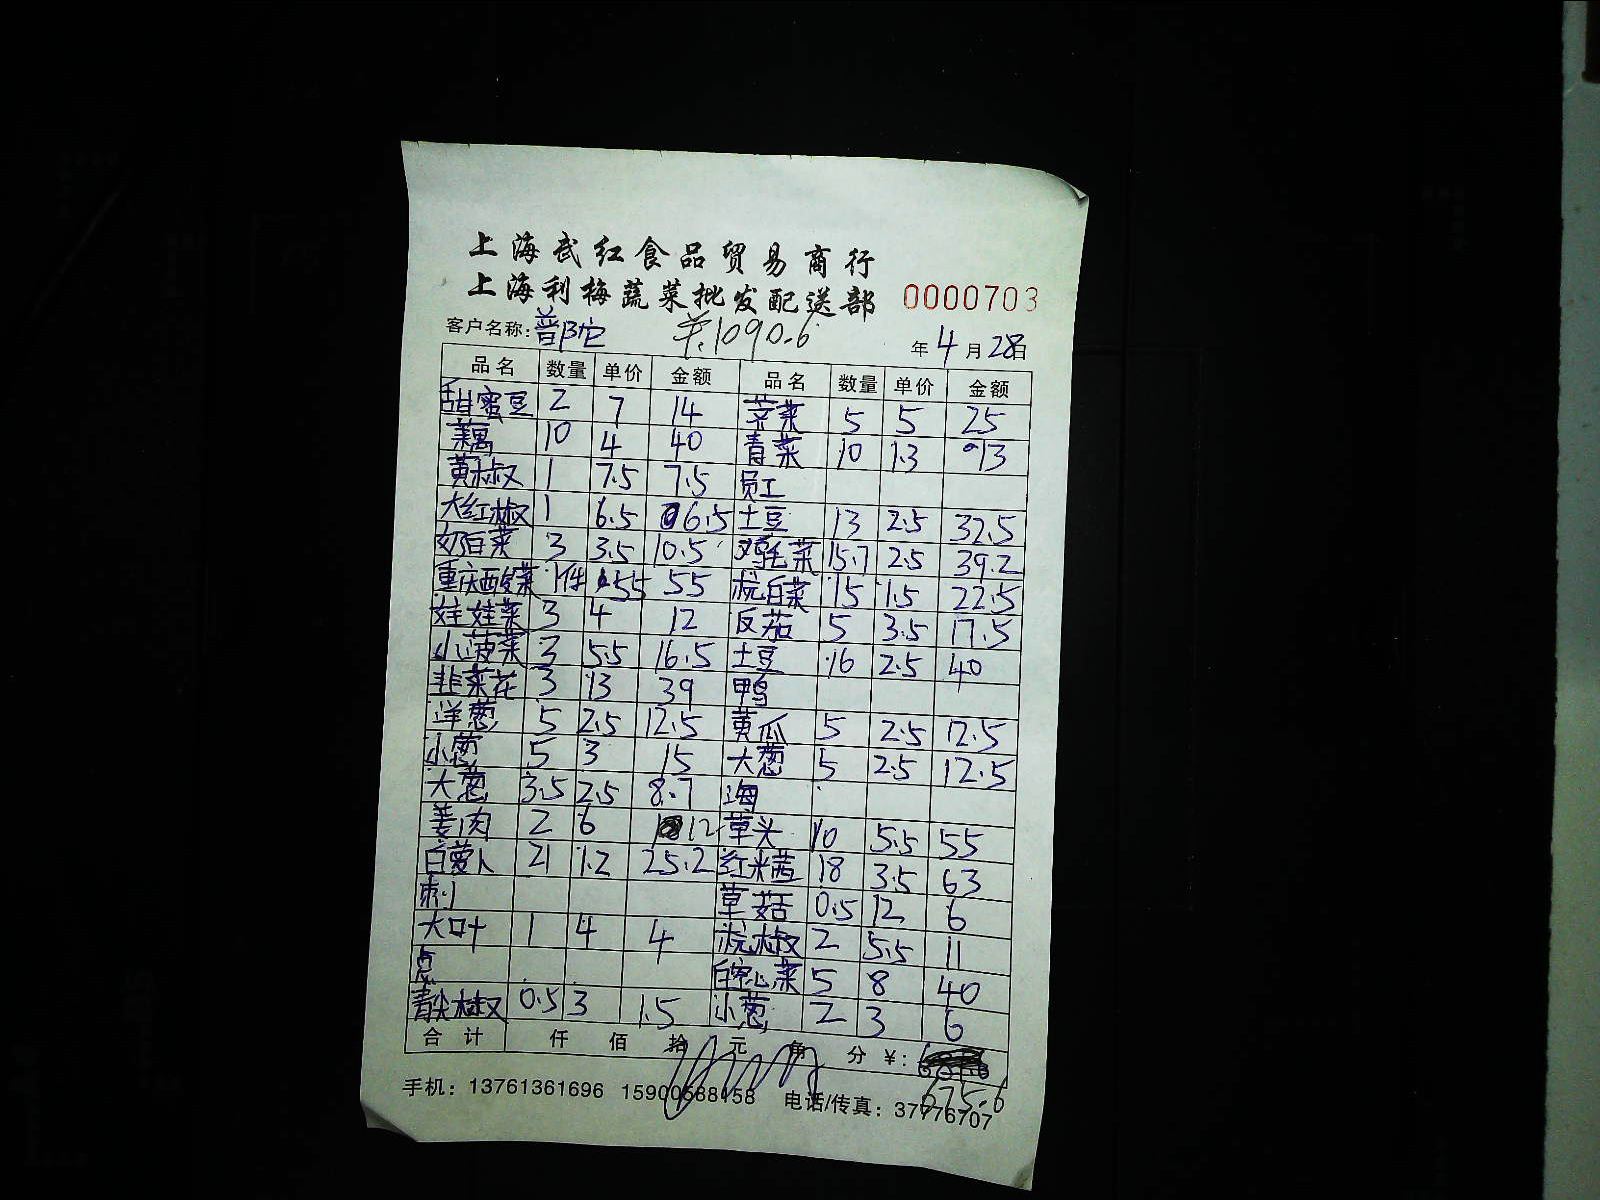 上海武红食品贸易商行
上海利梅蔬菜批发配送部 0000703
客户名称: 普陀 共.1090.6 年 4 月 28 日
品名 数量 单价 金额 品名 数量 单价 金额
甜蜜豆 2 7 14 芹菜 5 5 25
藕 10 4 40 青菜 10 1.3 13
黄椒 1 7.5 7.5 员工
大红椒 1 6.5 6.5 土豆 13 2.5 32.5
奶白菜 3 3.5 10.5 鸡毛菜 15.7 2.5 39.2
重庆酸菜 1件 55 55 杭白菜 15 1.5 22.5
娃娃菜 3 4 12 反茄 5 3.5 17.5
小菠菜 3 5.5 16.5 土豆 16 2.5 40
韭菜花 3 13 39 鸭
洋葱 5 2.5 12.5 黄瓜 5 2.5 12.5
小葱 5 3 15 大葱 5 2.5 12.5
大葱 3.5 2.5 8.7 海
姜肉 2 6 12 草头 10 5.5 55
白萝卜 21 1.2 25.2 红米苋 18 3.5 63
刺 草菇 0.5 12 6
大叶 1 4 4 杭椒 2 5.5 11
点 白空心菜 5 8 40
青尖椒 0.5 3 1.5 小葱 2 3 6
合计 仟 佰 拾 元 角 分 ¥:
675.6
手机: 13761361696 15900588158 电话/传真: 37776707